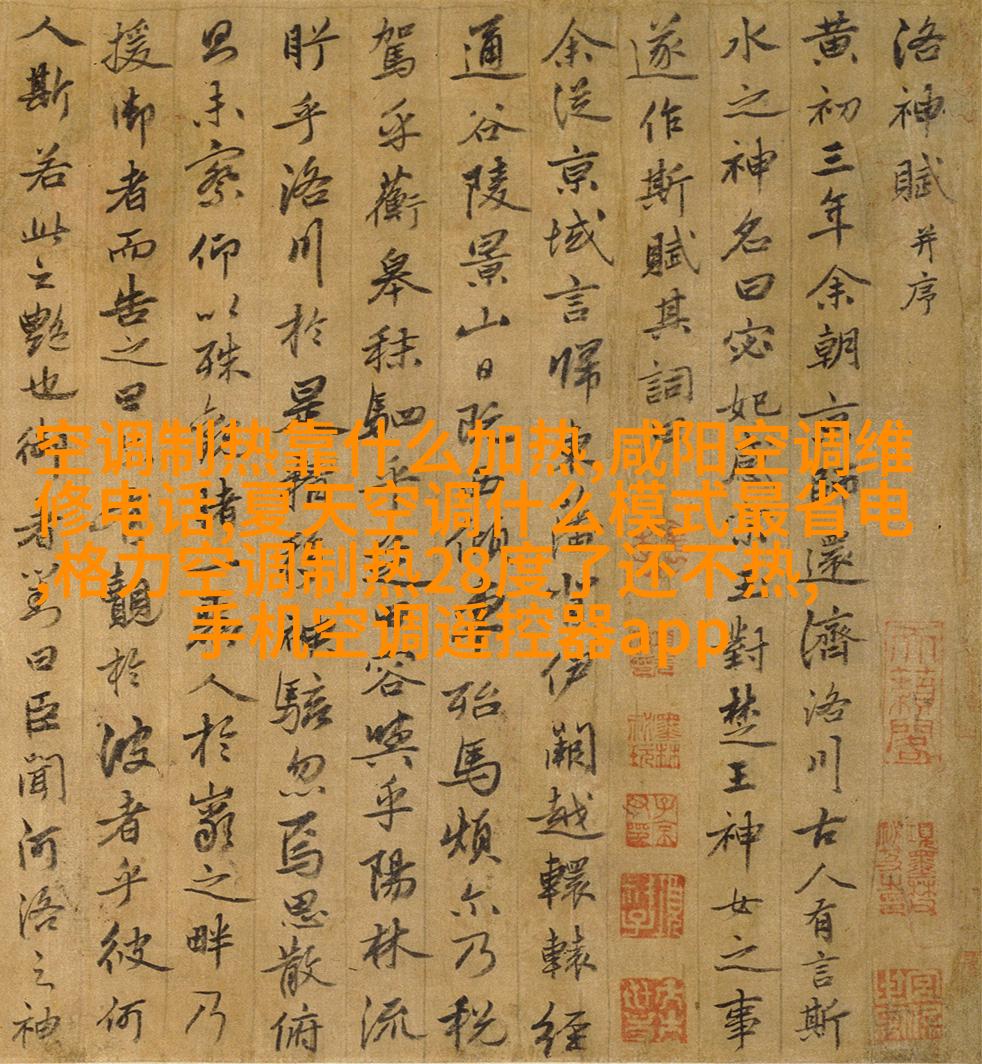 洛神賦 并序
黄初三年余朝京師還濟洛川古人有言斯
水之神名曰宓妃感宋玉對楚王神女之事
遂作斯賦其詞曰
余從京域言歸東藩背伊闕越轘轅經
通谷陵景山日既西傾車殆馬煩尔乃税
駕乎蘅皋秣駟乎芝田容與乎陽林流
眄乎洛川於是精移神駭忽焉思散俯
則未察仰以殊觀睹一麗人於巖之畔乃
援御者而告之曰尔有覿於彼者乎彼何
人斯若此之艷也御者對曰臣聞河洛之神
空调制热靠什么加热,咸阳空调维
修电话,夏天空调什么模式最省电
,格力空调制热28度了还不热,
手机空调遥控器app